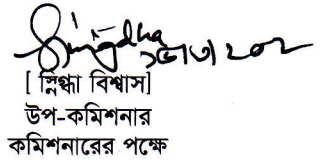 Snigdha
[ স্নিগ্ধা বিশ্বাস]
উপ-কমিশনার
কমিশনারের পক্ষে